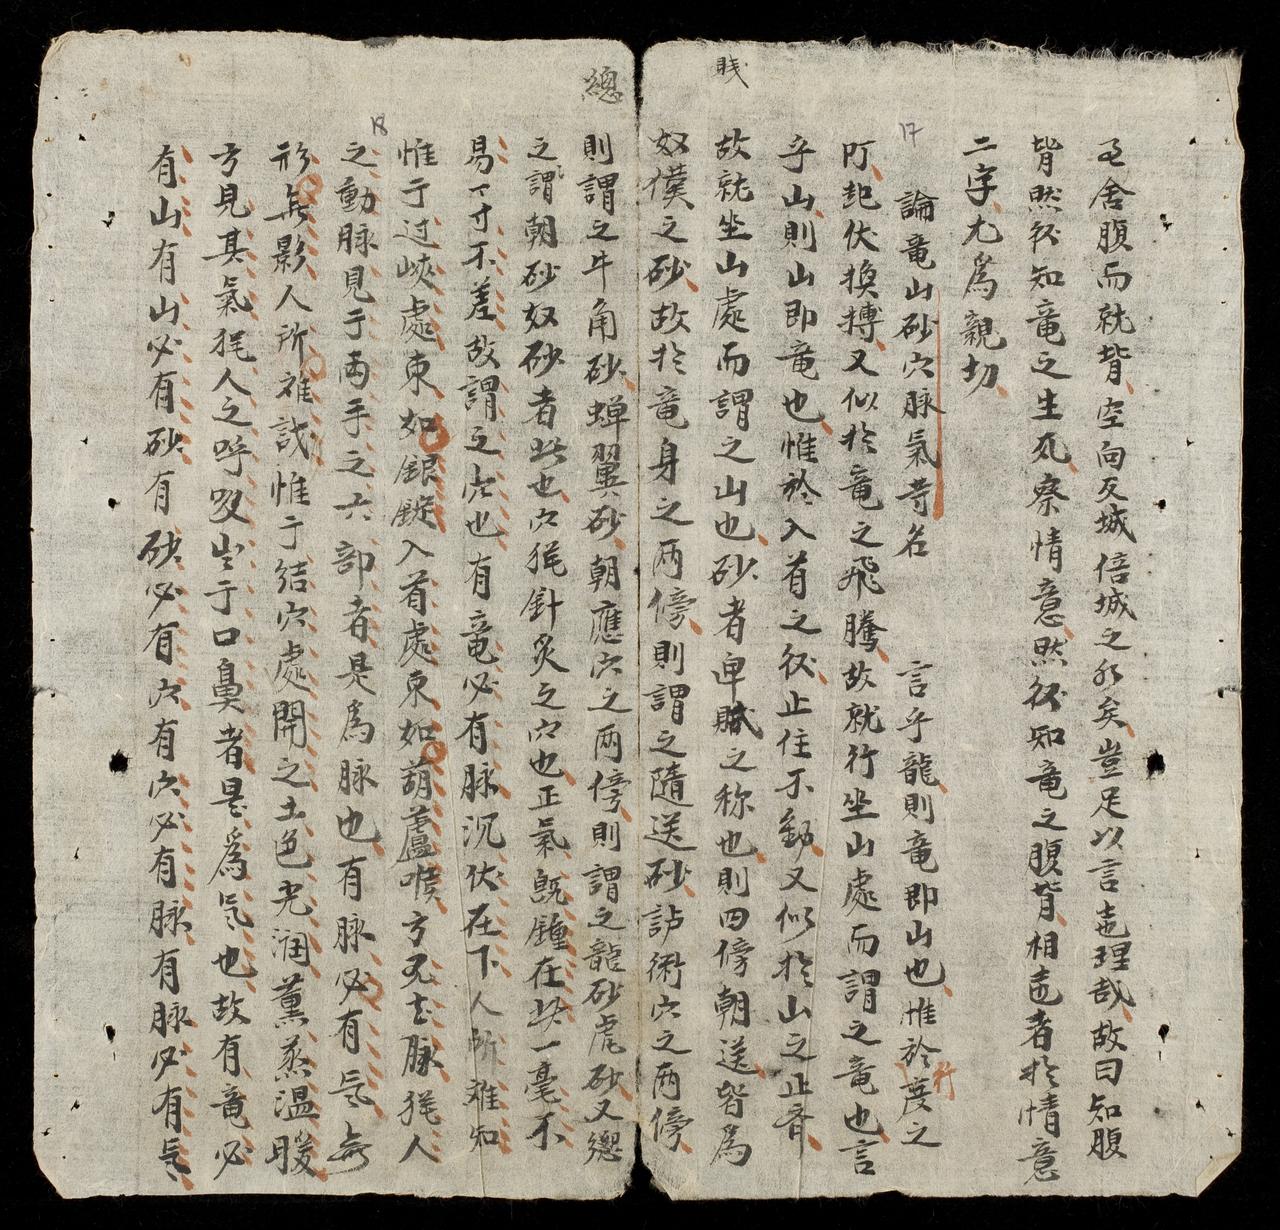 舍腹而就背、空向反城倍城之水矣、豈足以言造理哉、故曰知腹
背然後知竜之生死、察情意、然後知竜之腹背相違者於情意
二字尤爲親切
論竜山砂穴脉氣等名　言乎龍則竜即山也、惟於度之
行
叮起伏換摶、又似於竜之飛騰、故就行坐山處而謂之竜也言
乎山、則山即竜也、惟於入首之後、止住不動又似於山之止脊
故就坐山處而謂之山也、砂者卑賎之称也、則四傍朝送、皆爲
賎
奴僕之砂、故於竜身之两傍、則謂之隨送砂、訪術穴之两傍、
總
則謂之牛角砂、蝉翼砂、朝應穴之两傍、則謂之龍砂虎砂、又總
之謂朝砂奴砂者此也、穴猶針灸之穴也、正氣既鍾在此一毫不
易一寸不差、故謂之穴也、有竜必有脉、沉伏在下、人所难知
惟于过峽處束如銀錠、入首處束如葫蘆喉、方見其脉、猶人
18
之動脉見于两手之六部者、是爲脉也、有脉必有气、無
形無影、人所难識、惟于結穴處開之、土色光潤薰蒸温暖
方見其氣、猶人之呼吸出于口鼻者是爲气也、故有竜必
有山、有山必有砂、有砂必有穴、有穴必有脉、有脉必有气
17